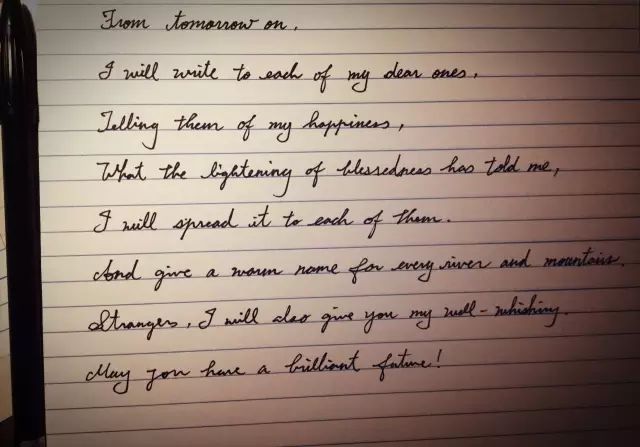 From tomorrow on,
I will write to each of my dear ones,
Telling them of my happiness,
What the lightening of blessedness has told me,
I will spread it to each of them.
And give a warm name for every river and mountain.
Strangers, I will also give you my well-whishing.
May you have a brilliant future!